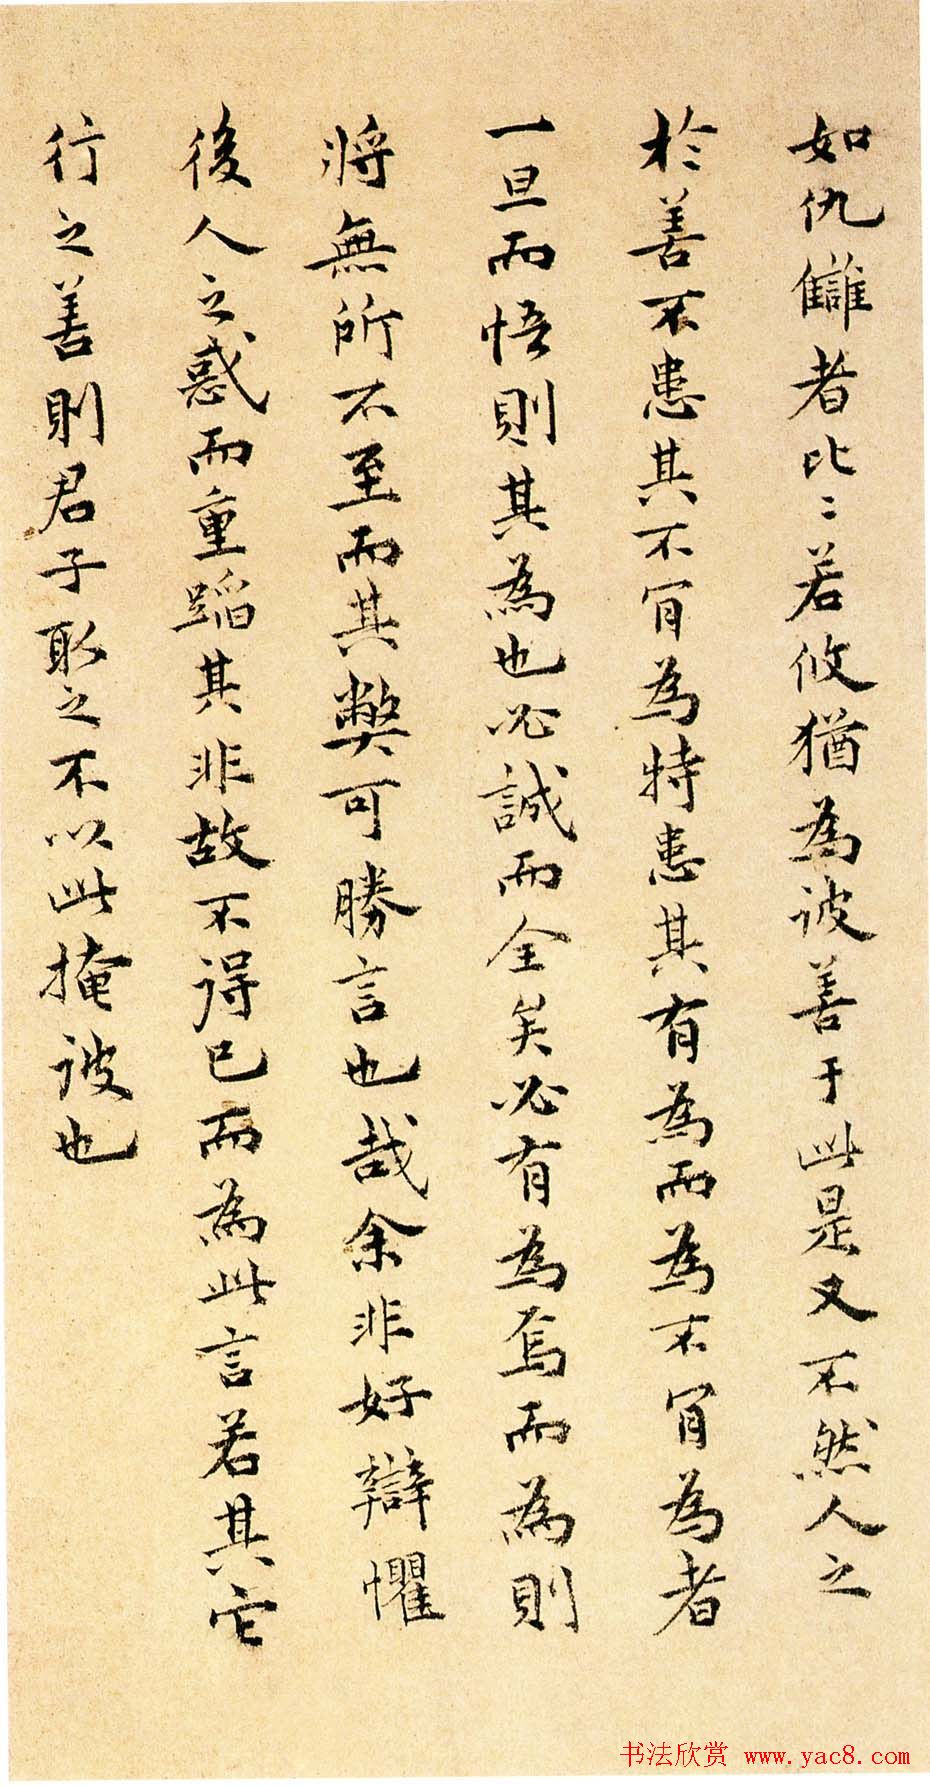 如仇讎者比〻若攸猶為詖善于此是又不然人之
於善不患其不肯為特患其有為而為不肯為者
一旦而悟則其為也必誠而全矣必有為焉而為則
將無所不至而其弊可勝言也哉余非好辯懼
後人之惑而重蹈其非故不得已而為此言若其它
行之善則君子取之不以此掩詖也
书法欣赏 www.yac8.com